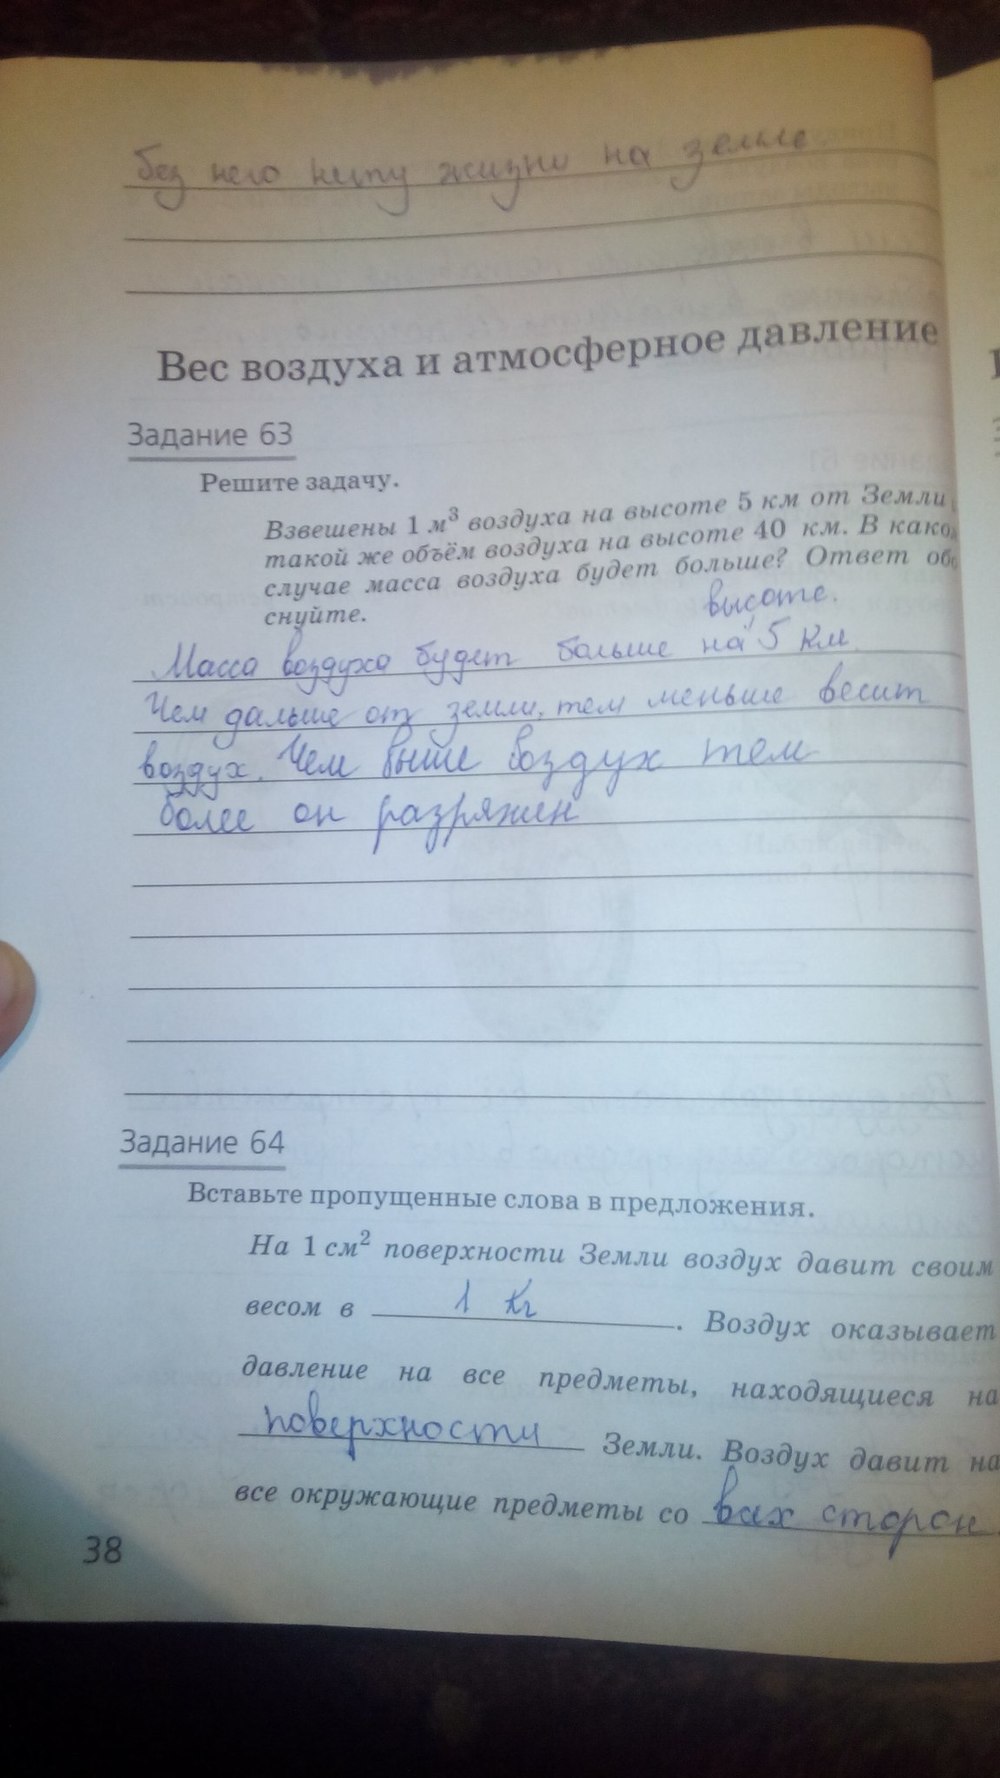 без него нету жизни на земле
Вес воздуха и атмосферное давление
Задание 63
Решите задачу.
Взвешены 1 м³ воздуха на высоте 5 км от Земли
такой же объём воздуха на высоте 40 км. В како
случае масса воздуха будет больше? Ответ об
снуйте.
высоте.
Масса воздуха будет больше на 5 км.
Чем дальше от земли, тем меньше весит
воздух. Чем выше воздух тем
более он разряжен
Задание 64
Вставьте пропущенные слова в предложения.
На 1 см² поверхности Земли воздух давит своим
весом в 1 кг. Воздух оказывает
давление на все предметы, находящиеся на
поверхности Земли. Воздух давит на
все окружающие предметы со всех сторон.
38